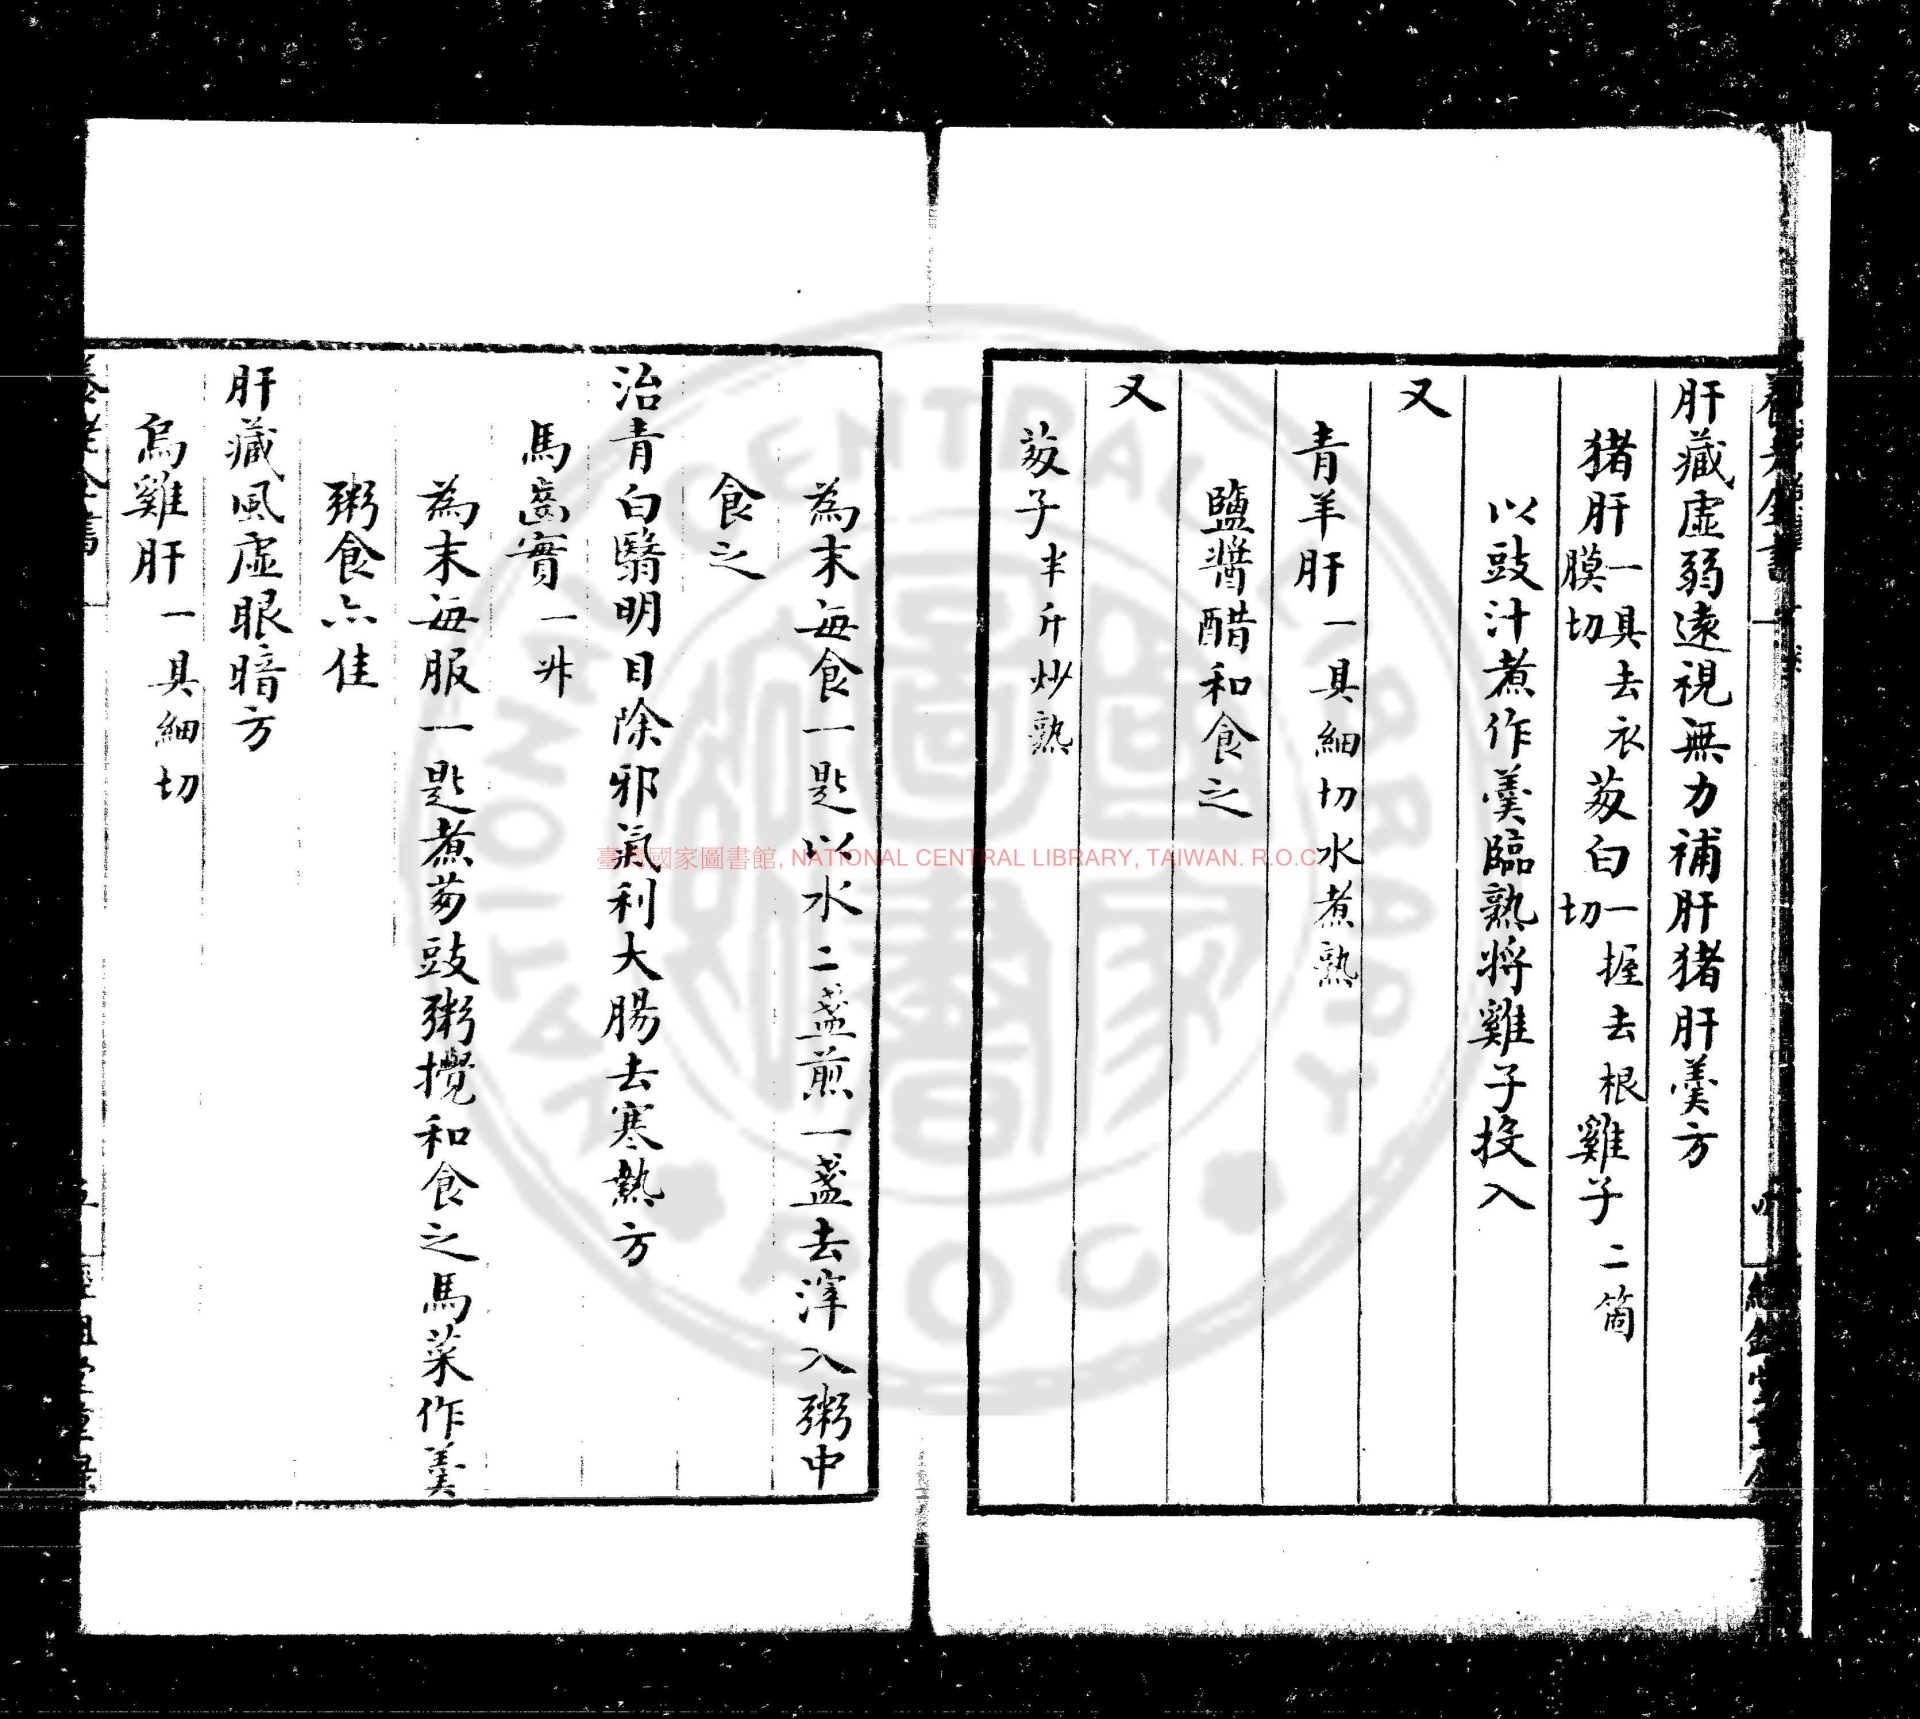 肝藏虛弱遠視無力補肝猪肝羹方
猪肝一具去衣膜切 葱白一握去根切 雞子二箇
以豉汁煮作羹臨熟将雞子投入
又
青羊肝一具細切水煮熟
鹽醬醋和食之
又
葱子半斤炒熟
為末每食一匙以水二盞煎一盞去滓入粥中
食之
治青白翳明目除邪氣利大腸去寒熱方
馬齒實一升
為末每服一匙煮葱豉粥攪和食之馬菜作羹
粥食亦佳
肝藏風虛眼暗方
烏雞肝一具細切
臺灣國家圖書館, NATIONAL CENTRAL LIBRARY, TAIWAN. R.O.C
NATIONAL CENTRAL LIBRARY
國家圖書
ROC